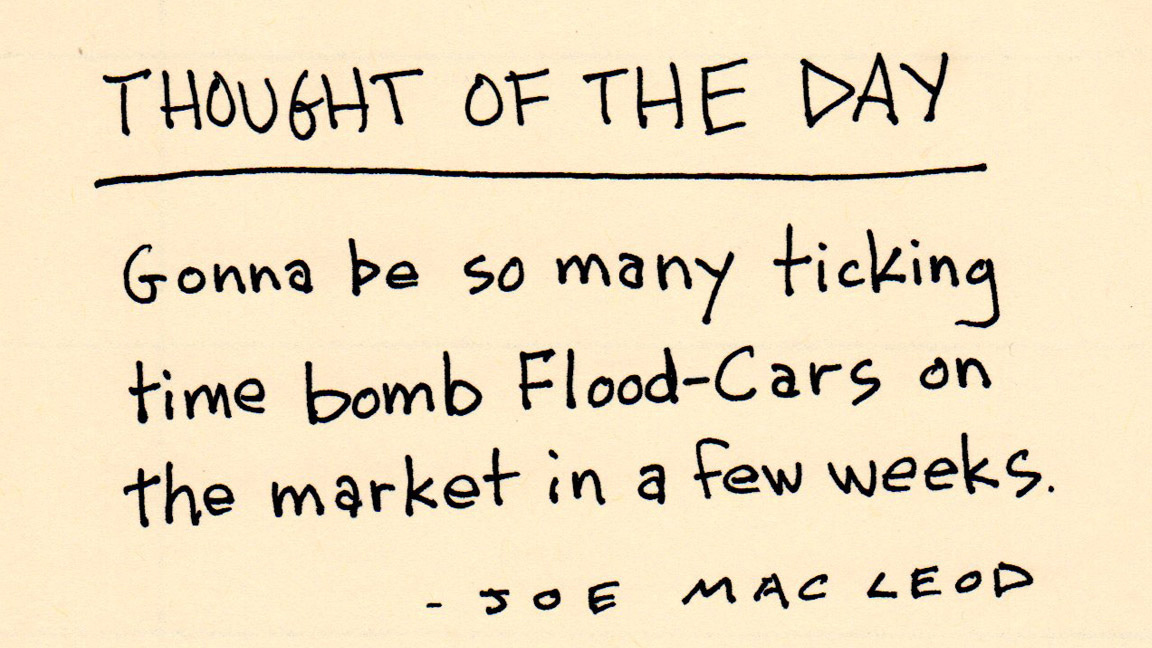 THOUGHT OF THE DAY
Gonna be so many ticking
time bomb Flood-Cars on
the market in a few weeks.
- JOE MAC LEOD